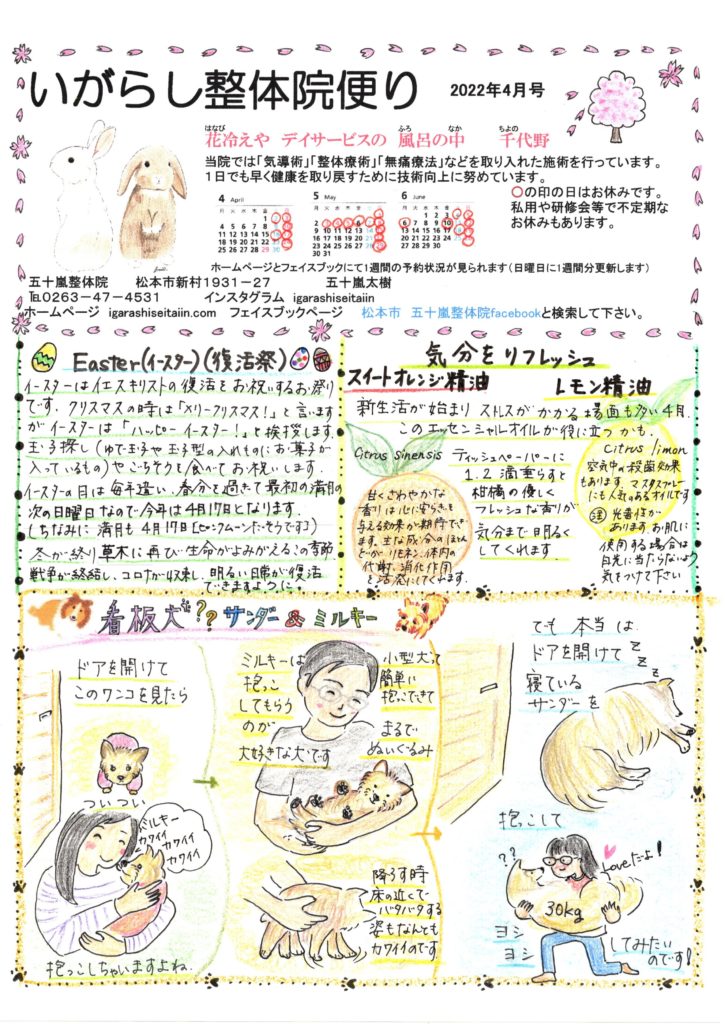 いがらし整体院便り
2022年4月号
はなび ふろ なか ちよの
花冷えや デイサービスの 風呂の中 千代野
当院では「気導術」「整体療術」「無痛療法」などを取り入れた施術を行っています。
1日でも早く健康を取り戻すために技術向上に努めています。
○の印の日はお休みです。
私用や研修会等で不定期な
お休みもあります。
4 April
月 火 水 木 金 土 日
1 2 3
4 5 6 7 8 9 10
11 12 13 14 15 16 17
18 19 20 21 22 23 24
25 26 27 28 29 30
5 May
月 火 水 木 金 土 日
1
2 3 4 5 6 7 8
9 10 11 12 13 14 15
16 17 18 19 20 21 22
23 24 25 26 27 28 29
30 31
6 June
月 火 水 木 金 土 日
1 2 3 4 5
6 7 8 9 10 11 12
13 14 15 16 17 18 19
20 21 22 23 24 25 26
27 28 29 30
ホームページとフェイスブックにて1週間の予約状況が見られます(日曜日に1週間分更新します)
五十嵐整体院 松本市新村1931-27 五十嵐太樹
℡0263-47-4531 インスタグラム igarashiseitaiin
ホームページ igarashiseitaiin.com フェイスブックページ 松本市 五十嵐整体院facebookと検索して下さい。
Easter(イースター)(復活祭)
イースターはイエスキリストの復活をお祝いするお祭り
です。クリスマスの時は「メリークリスマス!」と言います
がイースターは「ハッピーイースター!」と挨拶します。
玉子探し(ゆで玉子や玉子型の入れものにお菓子が
入っているもの)やごちそうを食べてお祝いします。
イースターの日は毎年違い、春分を過ぎて最初の満月の
次の日曜日なので今年は4月17日となります。
(ちなみに満月も4月17日(ピンクムーンだそうです))
冬が終り草木に再び生命がよみがえるこの季節
戦争が終結し、コロナが収束し、明るい日常が復活
できますように。
気分をリフレッシュ
スイートオレンジ精油 レモン精油
新生活が始まり ストレスがかかる場面も多い4月。
このエッセンシャルオイルが役に立つかも。
Citrus Sinensis
甘くさわやかな
香りは心に安らぎを
与える効果が期待でき
ます。主な成分のほとん
どがリモネン、体内の
代謝、消化作用
を活発にしてくれます。
ティッシュペーパーに
1.2滴垂らすと
柑橘の優しく
フレッシュな香りが
気分まで明るく
してくれます。
Citrus limon
空気中の殺菌効果
もあります。マスクスプレー
にも人気のあるオイルです
注 光毒性が
あります お肌に
使用する場合は
日光に当たらないよう
気をつけて下さい
看板犬?? サンダー & ミルキー
ドアを開けて
このワンコを見たら
ついつい
ミルキー
カワイイ
カワイイ
カワイイ
抱っこしちゃいますよね。
ミルキーは
抱っこ
してもらう
のが
大好きな犬です
小型犬って
簡単に
抱っこできて
まるで
ぬいぐるみ
降ろす時
床の近くで
バタバタする
姿もなんとも
カワイイのです
でも 本当は
ドアを開けて
寝ている
サンダーを
Z Z Z
抱っこして
??
Loveだよ!
30kg
ヨシ
ヨシ
してみたい
のです!